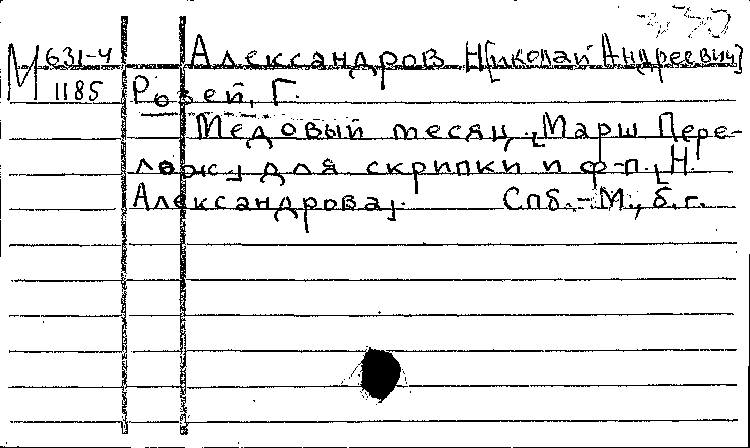 М 631-4 Александров Н[иколай Андреевич]
1185 Розей, Г.
Медовый месяц. [Марш Пере-
лож.] для скрипки и ф-п. [Н.
Александрова]. Спб.-М., б.г.